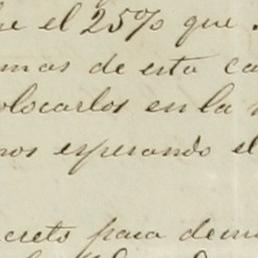 el 25% que
mas de esta ca
olocarlos en la
nos esperando el
creto para demu